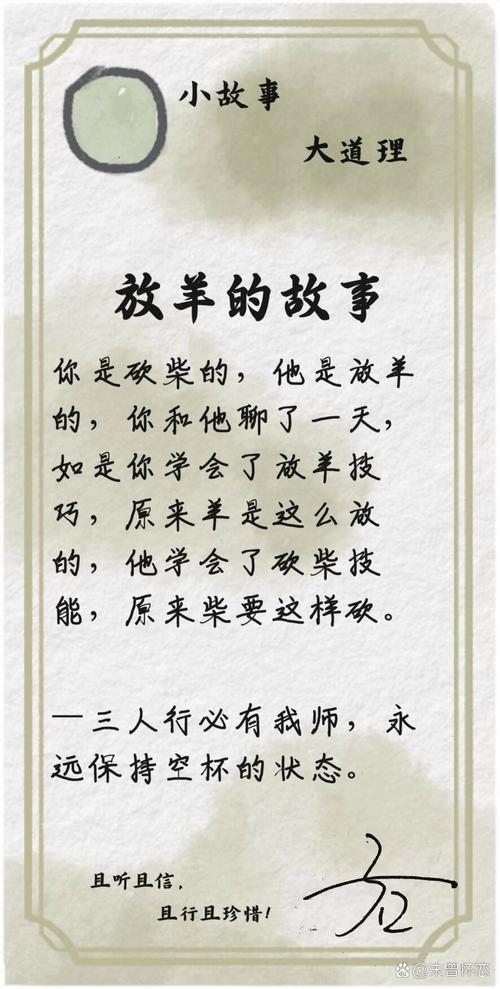 小故事
大道理
放羊的故事
你是砍柴的，他是放羊
的，你和他聊了一天，
如是你学会了放羊技
巧，原来羊是这么放
的，他学会了砍柴技
能，原来柴要这样砍。
—三人行必有我师，永
远保持空杯的状态。
且听且信，
且行且珍惜！
@未曾怀恋